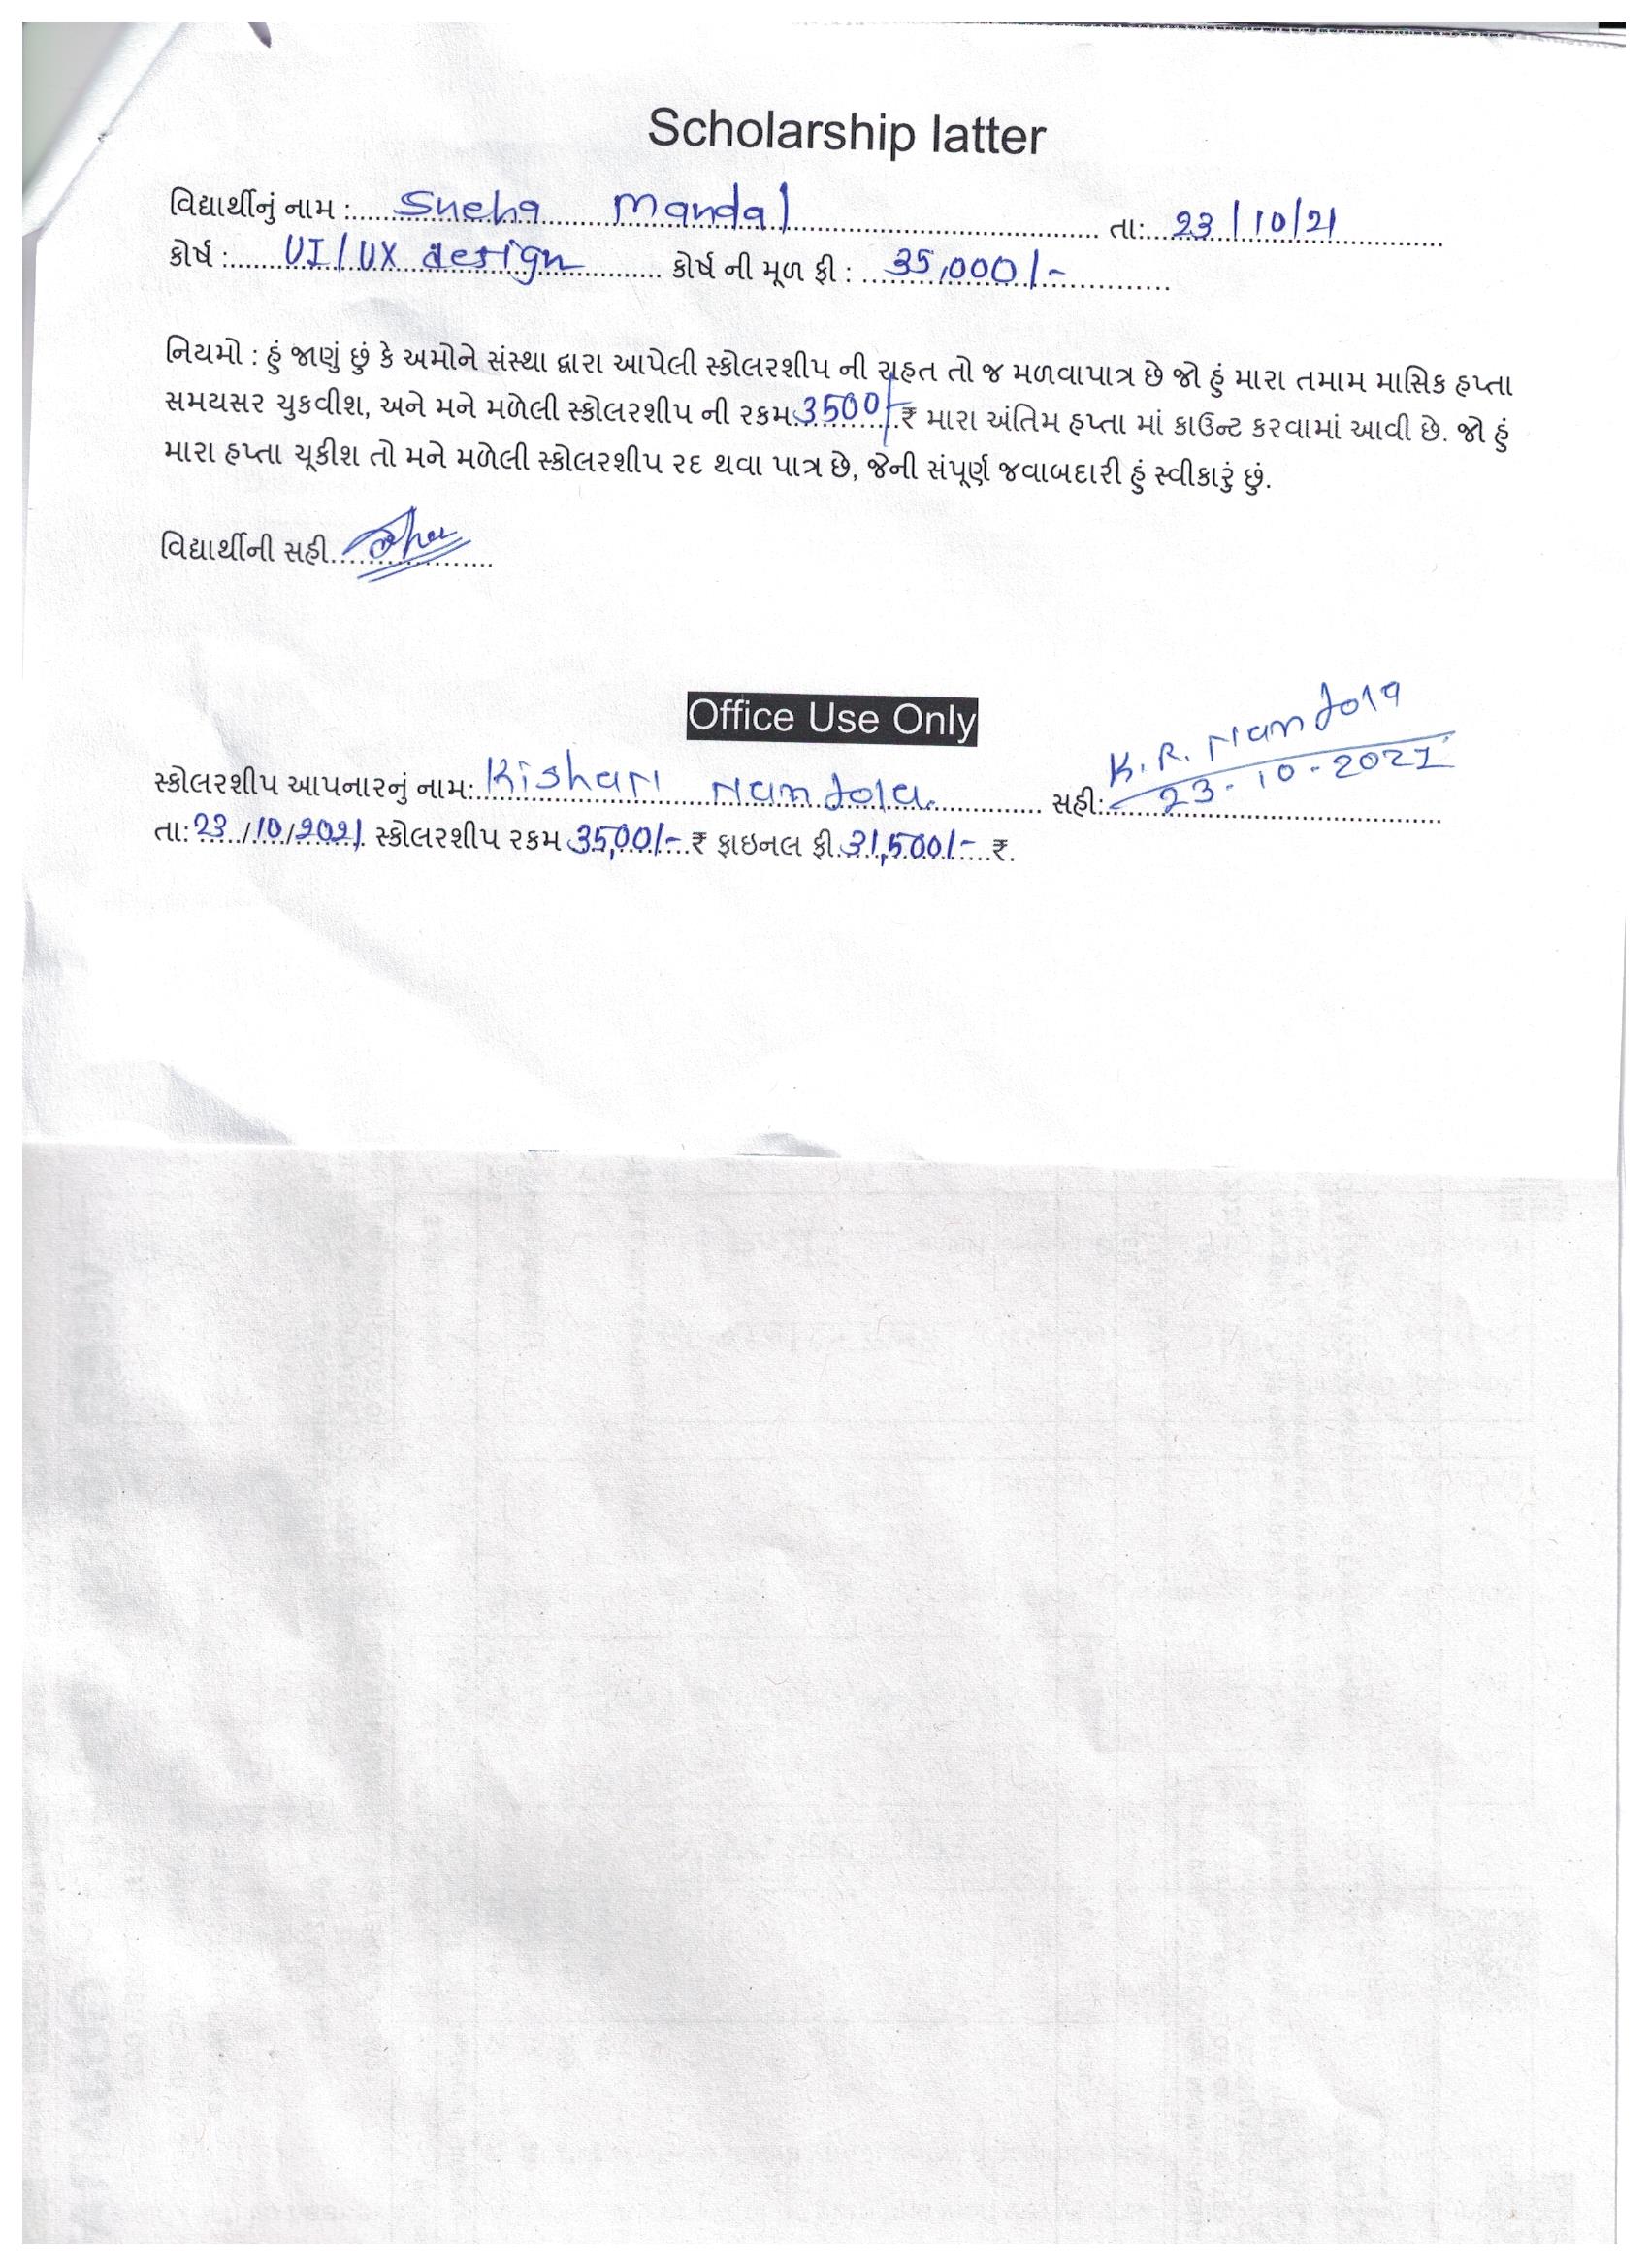 Scholarship latter
વિદ્યાર્થીનું નામ :..... Sneha Mandal ..... તા:.. 23/10/21 .....
કોર્ષ :..... UI/UX design ..... કોર્ષ ની મૂળ ફી : .. 35,000/- .....
નિયમો : હું જાણું છું કે અમોને સંસ્થા દ્વારા આપેલી સ્કોલરશીપ ની રાહત તો જ મળવાપાત્ર છે જો હું મારા તમામ માસિક હપ્તા
સમયસર ચુકવીશ, અને મને મળેલી સ્કોલરશીપ ની રકમ..3500/-..₹ મારા અંતિમ હપ્તા માં કાઉન્ટ કરવામાં આવી છે. જો હું
મારા હપ્તા ચૂકીશ તો મને મળેલી સ્કોલરશીપ રદ થવા પાત્ર છે, જેની સંપૂર્ણ જવાબદારી હું સ્વીકારું છું.
વિદ્યાર્થીની સહી.....
Office Use Only
સ્કોલરશીપ આપનારનું નામ:.. Kishan Nandola ..... સહી: K. R. Nandola
23-10-2021
તા: 23/10/2021 સ્કોલરશીપ રકમ 35,00/-..₹ ફાઇનલ ફી.31,500/-..₹.